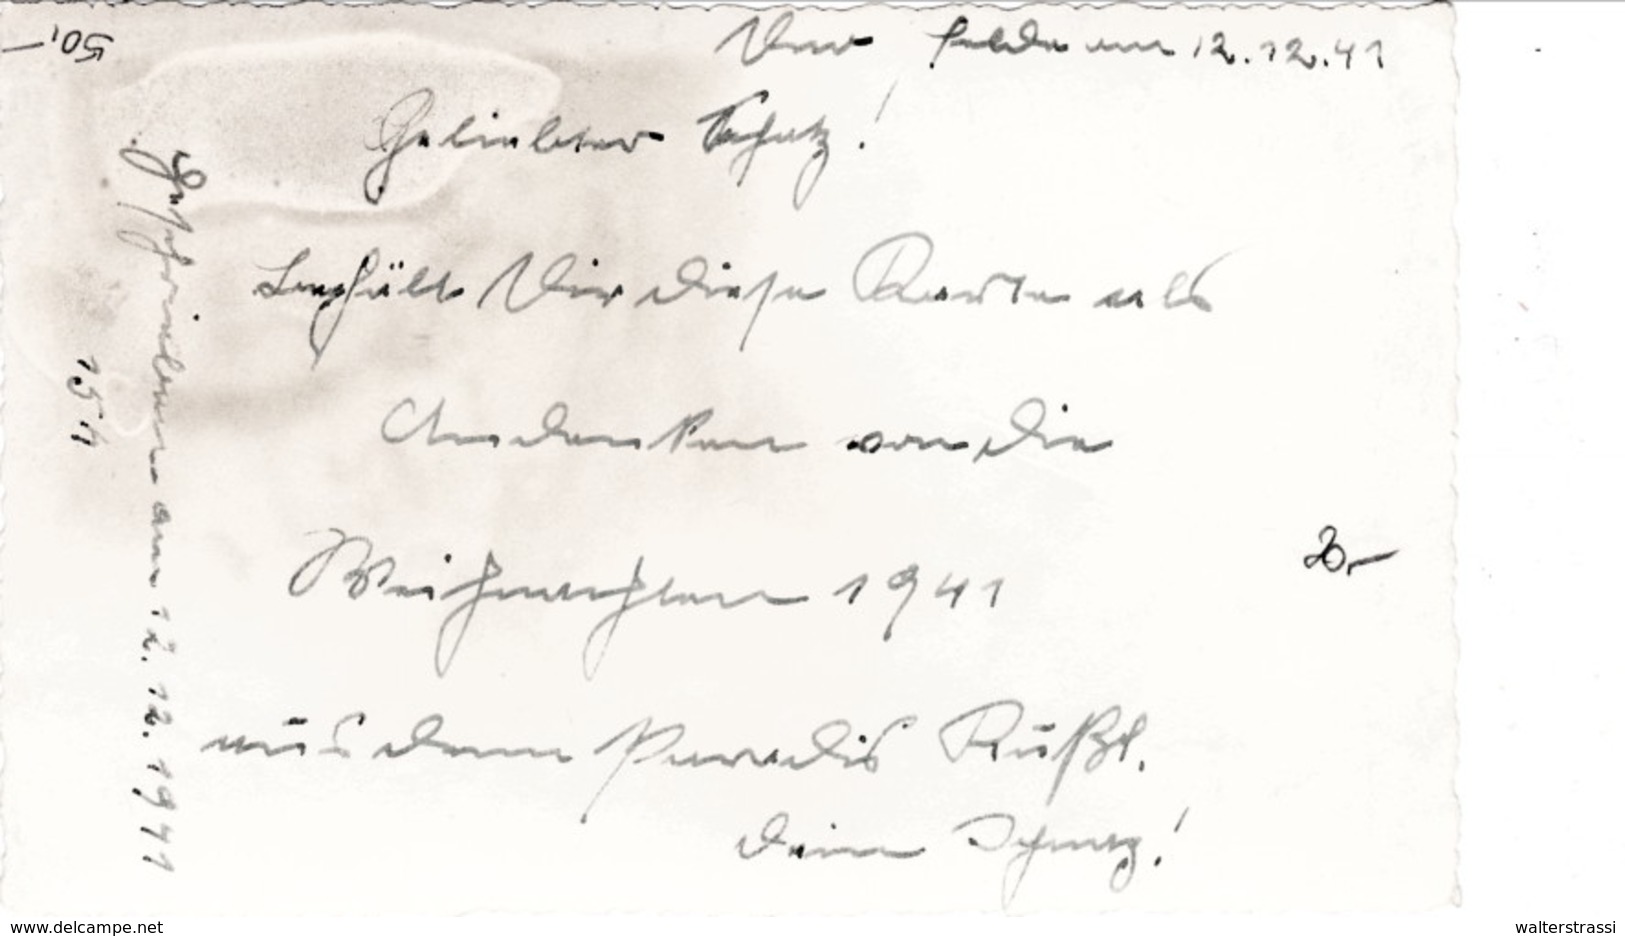 50,-
Im Felde am 12.12.41
Geliebter Schatz!
Behält Dir diese Karte als
Andenken von die
Weihnachten 1941
aus dem Paradis Rußl.
Dein
Geschrieben am 12.12.1941
15 h
20,-
www.delcampe.net
walterstrassi